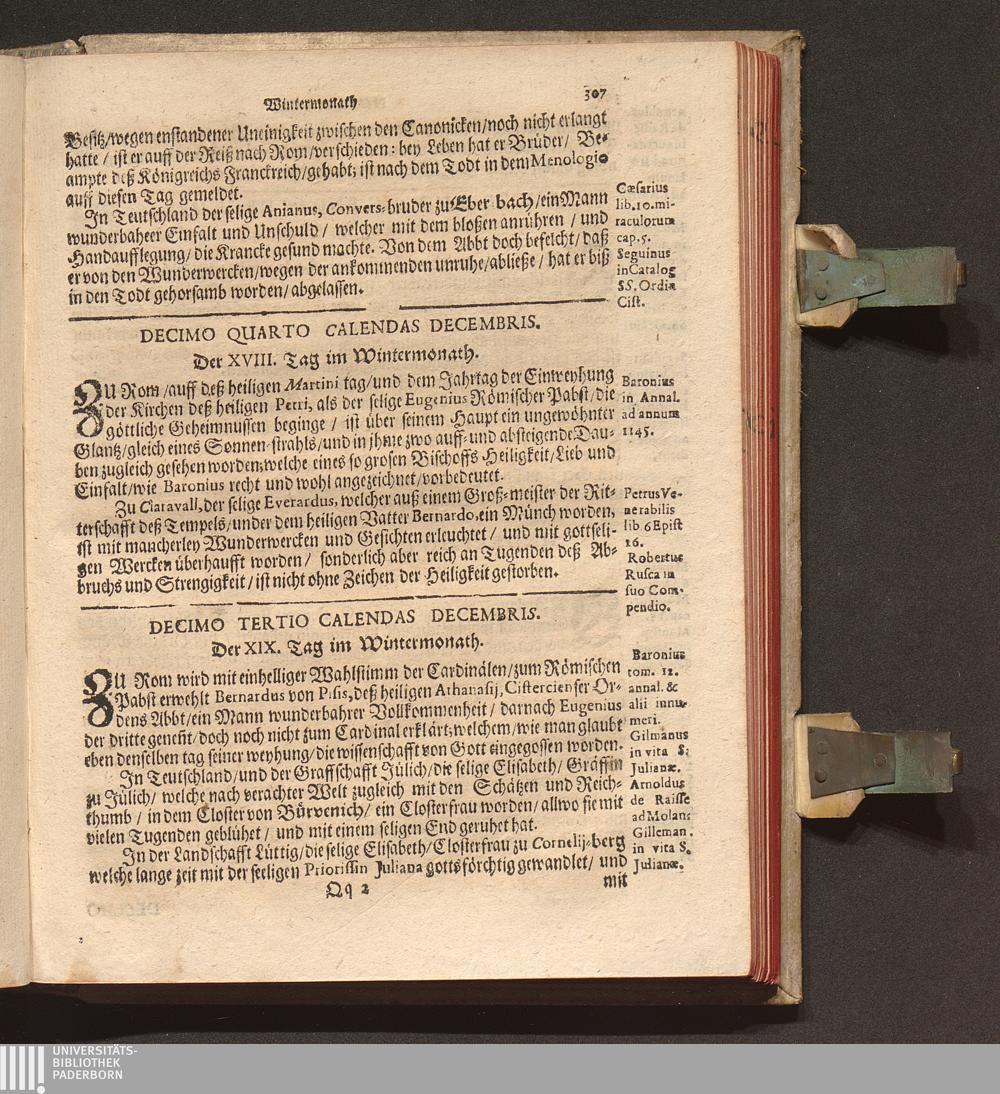 Wintermonath 307
Besitz/wegen enstandener Uneinigkeit zwischen den Canonicken/noch nicht erlangt
hatte / ist er auff der Reiß nach Rom/verschieden: bey Leben hat er Brüder/ Be-
ampte deß Königreichs Franckreich/gehabt; ist nach dem Todt in dem Menologio
auff diesen Tag gemeldet.
In Teutschland der selige Anianus, Convers-bruder zu Eber bach/ein Mann
wunderbaheer Einfalt und Unschuld / welcher mit dem bloßen anrühren / und
Handaufflegung/ die Krancke gesund machte. Von dem Abbt doch befelcht/ daß
er von den Wunderwercken/wegen der ankommenden unruhe/abließe / hat er biß
in den Todt gehorsamb worden/ abgelassen.
Cæsarius
lib.10.mi-
raculorum
cap.5.
Seguinus
in Catalog
SS. Ordiæ
Cist.
DECIMO QUARTO CALENDAS DECEMBRIS.
Der XVIII. Tag im Wintermonath.
ZU Rom /auff deß heiligen Martini tag/und dem Jahrtag der Einweyhung
der Kirchen deß heiligen Petri, als der selige Eugenius Römischer Pabst/die
göttliche Geheimnussen beginge / ist über seinem Haupt ein ungewöhnter
Glantz/gleich eines Sonnen-strahls/und in ihme zwo auff-und absteigende Dau-
ben zugleich gesehen worden; welche eines so grosen Bischoffs Heiligkeit/Lieb und
Einfalt/wie Baronius recht und wohl angezeichnet/vorbedeutet.
Baronius
in Annal.
ad annum
1145.
Zu Claravall, der selige Everardus, welcher auß einem Groß-meister der Rit-
terschafft deß Tempels/under dem heiligen Vatter Bernardo, ein Münch worden,
ist mit mancherley Wunderwercken und Gesichten erleuchtet / und mit gottseli-
gen Wercken überhaufft worden / sonderlich aber reich an Tugenden deß Ab-
bruchs und Strengigkeit / ist nicht ohne Zeichen der Heiligkeit gestorben.
Petrus Ve-
nerabilis
lib. 6 Epist
16.
Robertus
Rusca in
suo Com-
pendio.
DECIMO TERTIO CALENDAS DECEMBRIS.
Der XIX. Tag im Wintermonath.
ZU Rom wird mit einhelliger Wahlstimm der Cardinälen/zum Römischen
Pabst erwehlt Bernardus von Pisis, deß heiligen Athanasij, Cistercienser Or-
dens Abbt/ein Mann wunderbahrer Vollkommenheit / darnach Eugenius
der dritte genent/doch noch nicht zum Cardinal erklärt; welchem/wie man glaubt
eben denselben tag seiner weyhung/die wissenschafft von Gott eingegossen worden.
In Teutschland/und der Graffschafft Jülich/die selige Elisabeth/ Gräffin
zu Jülich/ welche nach verachter Welt zugleich mit den Schätzen und Reich-
thumb / in dem Closter von Bürvenich/ ein Closterfrau worden/allwo sie mit
vielen Tugenden geblühet / und mit einem seligen End geruhet hat.
In der Landschafft Lüttig/die selige Elisabeth/Closterfrau zu Cornelij-berg
welche lange zeit mit der seeligen Priorissin Juliana gottsförchtig gewandlet/ und
Baronius
tom. 12.
annal. &
alii innu-
meri.
Gilmanus
in vita S.
Julianæ.
Arnoldus
de Raisse
ad Molan:
Gilleman.
in vita S.
Julianæ.
Qq 2 mit
UNIVERSITÄTS-
BIBLIOTHEK
PADERBORN